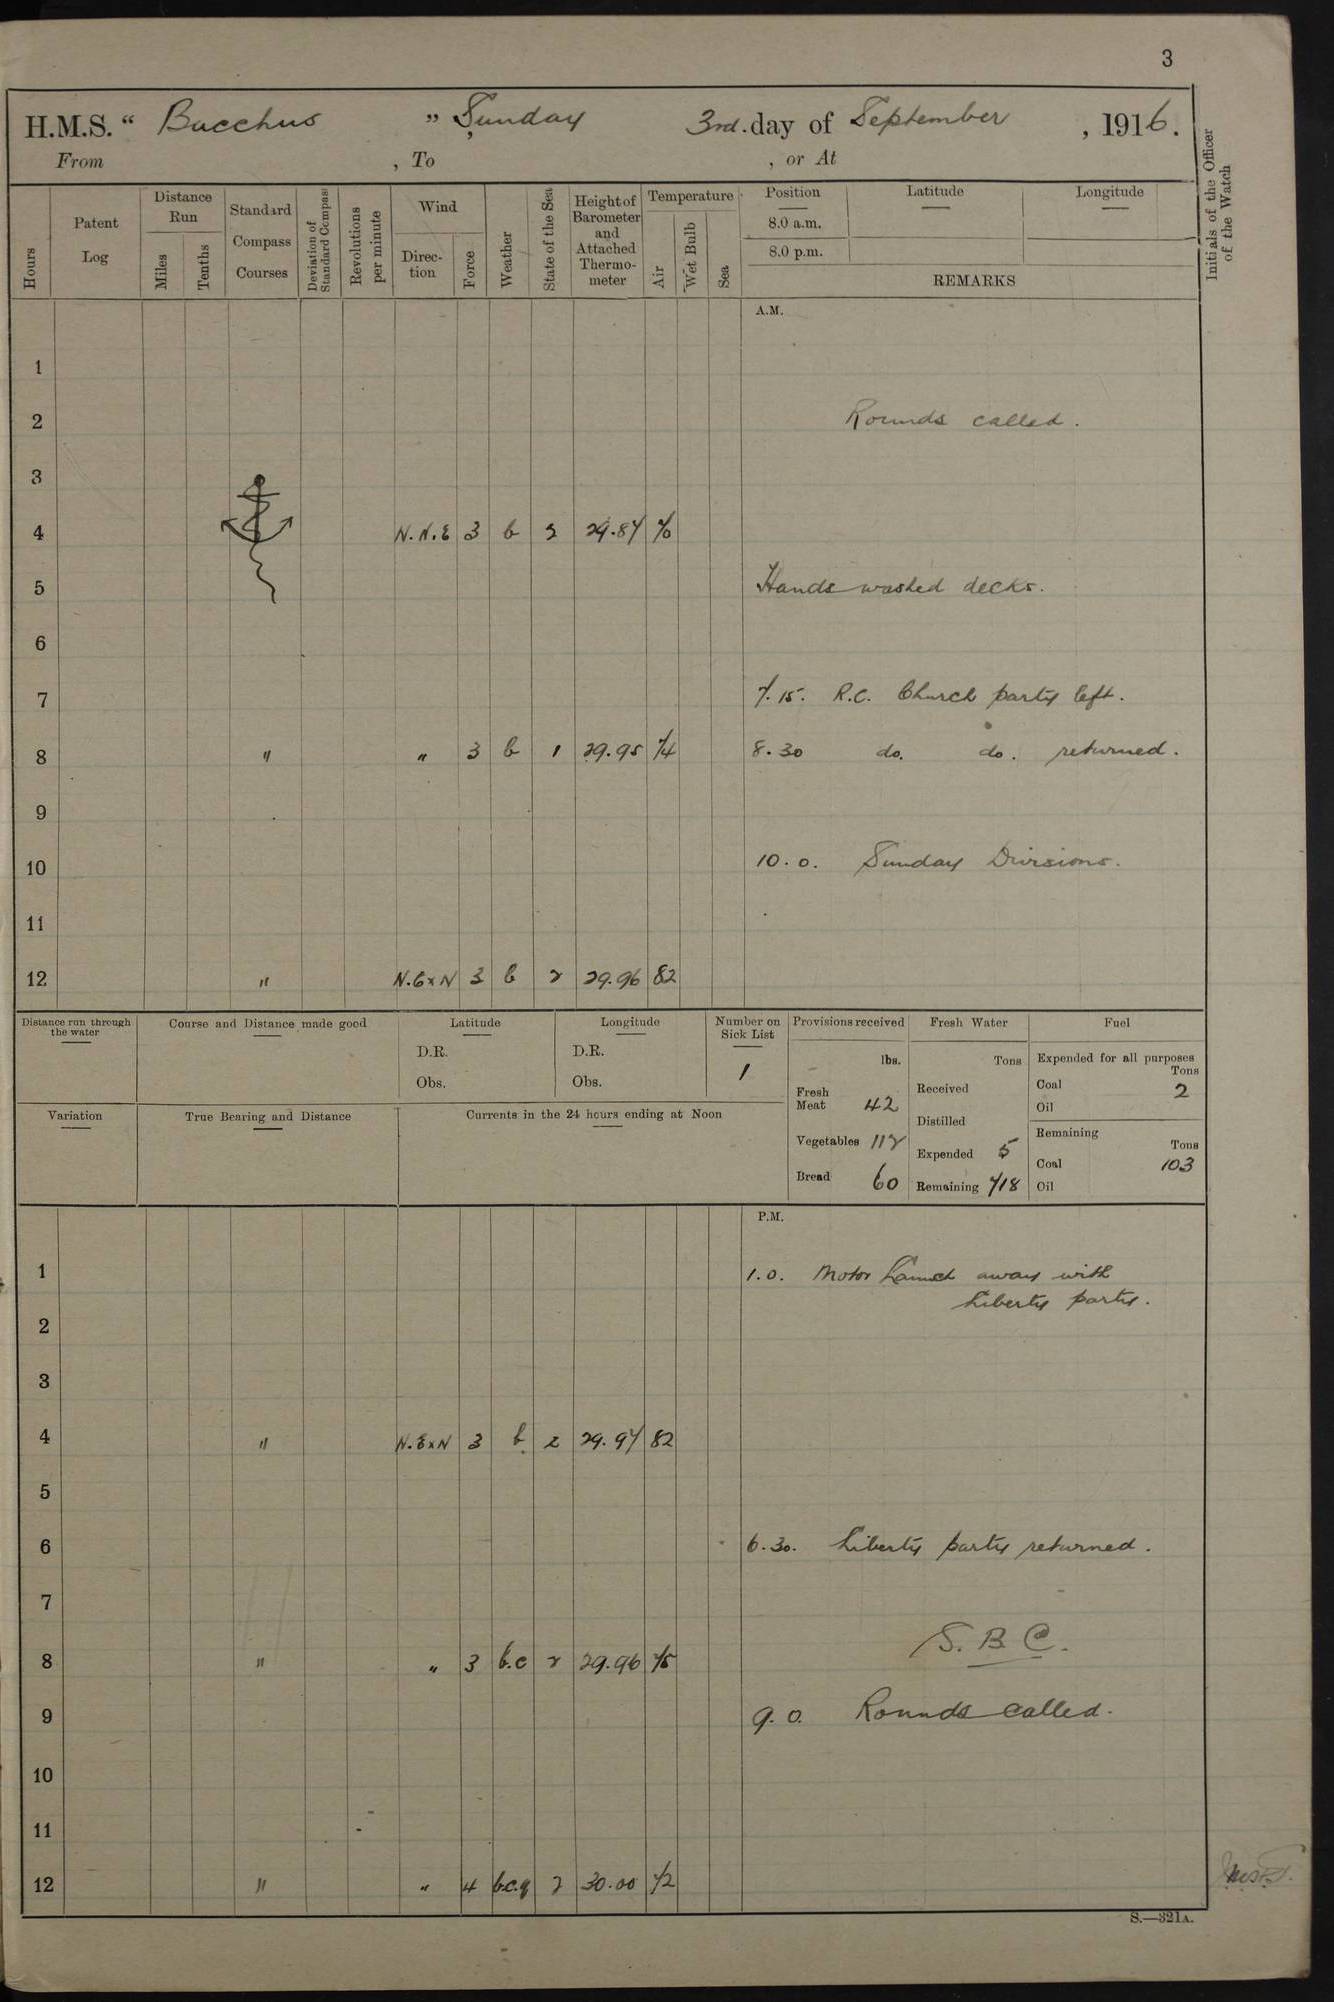 3
H.M.S. “ Bacchus ” Sunday 3rd. day of September , 1916.
From , To , or At
Hours
Patent Log
Distance Run
Miles
Tenths
Standard Compass Courses
Deviation of Standard Compass
Revolutions per minute
Wind
Direc-tion
Force
Weather
State of the Sea
Height of Barometer and Attached Thermo-meter
Temperature
Air
Wet Bulb
Sea
Position Latitude Longitude
8.0 a.m.
8.0 p.m.
REMARKS
Initials of the Officer of the Watch
A.M.
1
2 Rounds called.
3
4 N.N.E 3 b 2 29.87 70
5 Hands washed decks.
6
7 7.15. R.C. Church party left.
8 " " 3 b 1 29.95 74 8.30 do. do. returned.
9
10 10.0. Sunday Divisions.
11
12 " N.ExN 3 b 2 29.96 82
Distance run through the water
Course and Distance made good
Latitude
D.R.
Obs.
Longitude
D.R.
Obs.
Number on Sick List
1
Provisions received
lbs.
Fresh Meat 42
Vegetables 112
Bread 60
Fresh Water
Tons
Received
Distilled
Expended 5
Remaining 718
Fuel
Expended for all purposes
Tons
Coal 2
Oil
Remaining
Tons
Coal 103
Oil
Variation
True Bearing and Distance
Currents in the 24 hours ending at Noon
P.M.
1 1.0. Motor Launch away with
Liberty party.
2
3
4 " N.ExN 3 b 2 29.97 82
5
6 6.30. Liberty party returned.
7
S.B.C.
8 " " 3 b.c 2 29.96 75
9 9.0. Rounds called.
10
11
12 " " 4 b.c.q 2 30.00 72
S.—321A.